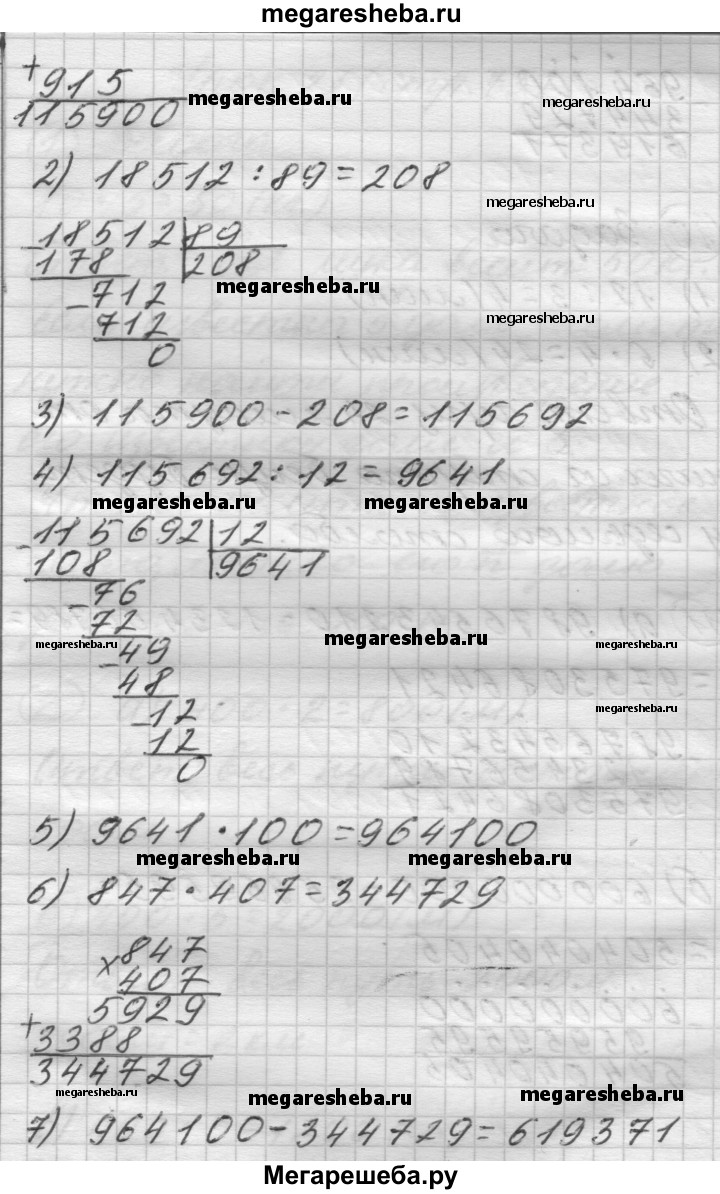 megaresheba.ru
+
915
115900
megaresheba.ru megaresheba.ru
2) 18512 : 89 = 208
megaresheba.ru
- 18512 | 89
178 208
megaresheba.ru
- 712
712
megaresheba.ru
0
3) 115900 - 208 = 115692
4) 115692 : 12 = 9641
megaresheba.ru megaresheba.ru
- 115692 | 12
108 9641
- 76
72
megaresheba.ru megaresheba.ru megaresheba.ru
- 49
48
megaresheba.ru
- 12
12
0
5) 9641 · 100 = 964100
megaresheba.ru megaresheba.ru
6) 847 · 407 = 344729
× 847
407
5929
+ 3388
344729
megaresheba.ru megaresheba.ru megaresheba.ru
7) 964100 - 344729 = 619371
Мегарешеба.ру